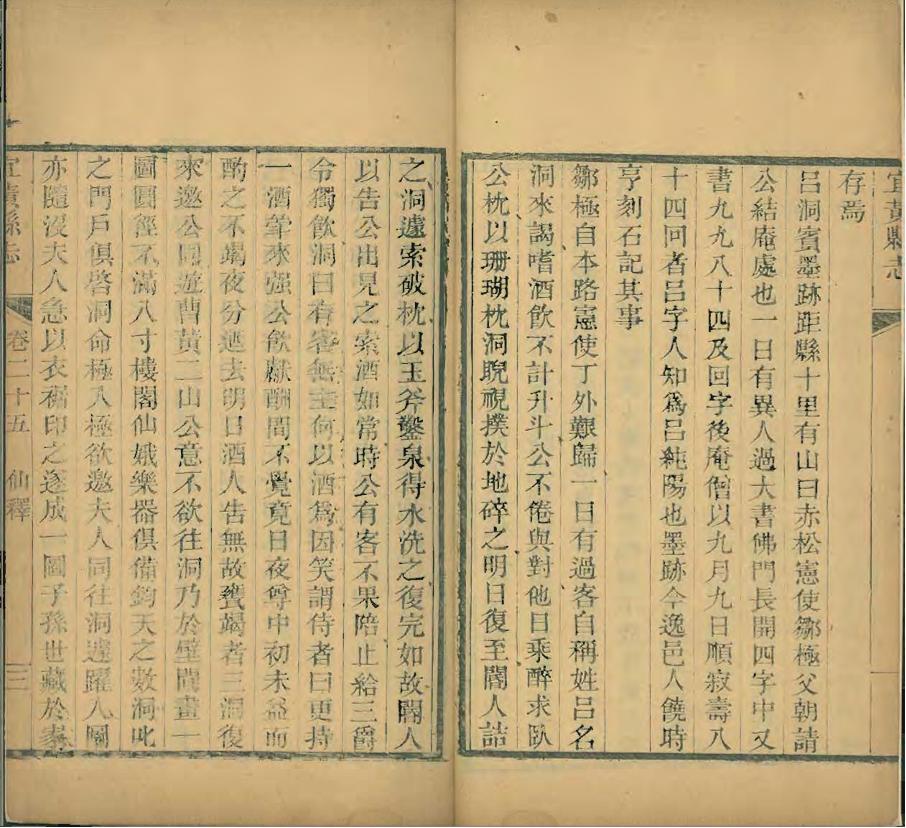 宜黃縣志
存焉
呂洞賓墨跡距縣十里有山曰赤松憲使鄒極父朝請
公結庵處也一日有異人過大書佛門長開四字中又
書九九八十四及回字後庵僧以九月九日順寂壽八
十四回者呂字人知爲呂純陽也墨跡今逸邑人饒時
亨刻石記其事
鄒極自本路憲使丁外艱歸一日有過客自稱姓呂名
洞來謁嗜酒飲不計升斗公不倦與對他日乘醉求臥
公枕以珊瑚枕洞睨視撲於地碎之明日復至閽人詰
之洞遽索破枕以玉斧鑿泉得水洗之復完如故閽人
以告公出見之索酒如常時公有客不果陪止給三爵
令獨飲洞曰有客無主何以酒爲因笑謂侍者曰更持
一酒掌來强公飲獻酬間不覺竟日夜尊中初未益而
酌之不竭夜分遁去明日酒人告無故甕竭者三洞復
來邀公同遊曹黃二山公意不欲往洞乃於壁間畫一
圖圓徑不滿八寸樓閣仙娥樂器俱備鈞天之數洞叱
之門戶俱啓洞命極入極欲邀夫人同往洞遽躍入圖
亦隨沒夫人急以衣裾印之遂成一圖子孫世藏於家
宜黃縣志 卷二十五 仙釋 三